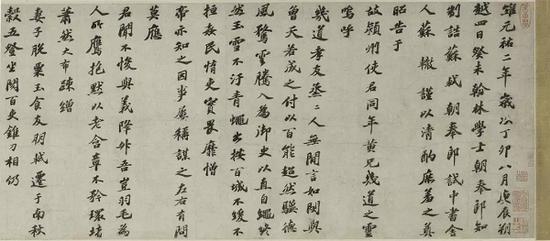 維元祐二年歲次丁卯八月庚辰朔
越四日癸未翰林學士朝奉郎知
制誥蘇軾朝奉郎試中書舍
人蘇轍謹以清酌庶羞之奠
昭告于
故潁州使君同年黃兄幾道之靈
嗚呼
幾道孝友蒸々人無間言如閔與
曾天若成之付以百能超然驥德
風騖雲騰入為御史以直自繩終
然玉雪不汙青蠅出按百城不緩不
拒姦民惰吏實畏靡憎
帝亦知之因事屢稱謀之左右有問
莫應
君聞不悛與義降升吾豈羽毛為
人所鷹抱默以老含章不矜環堵
蕭然大布疎繒
妻子脫粟玉食友朋軾遷于南秋
穀五登坐閱百吏錐刀相仍